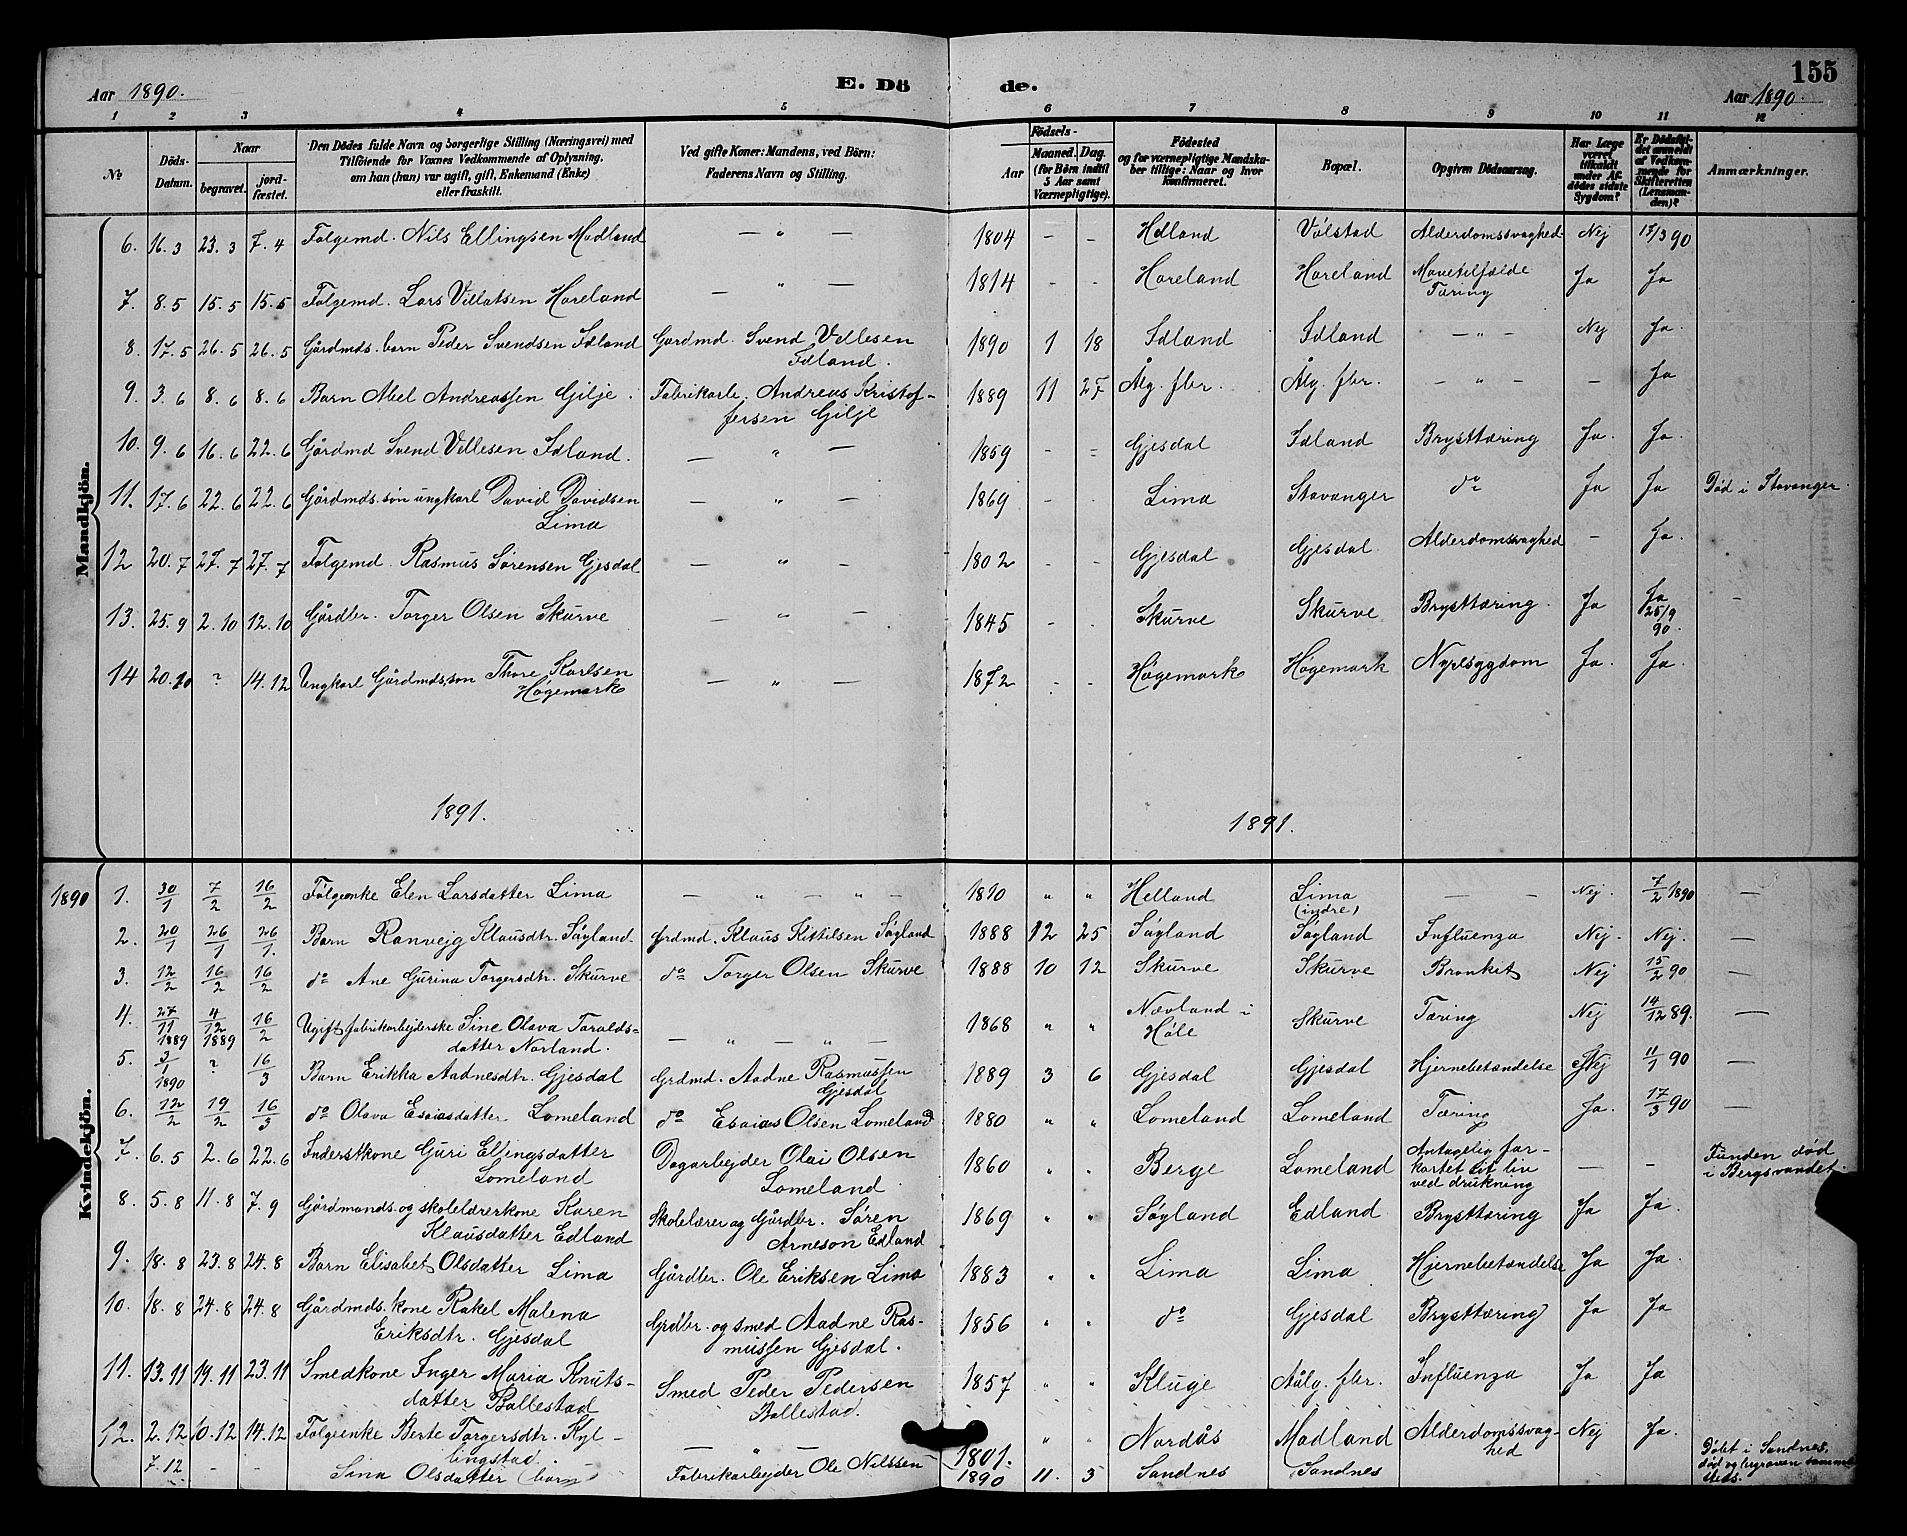 155
Aar 1890. E. Dö de. Aar 1890.
1 2 3 4 5 6 7 8 9 10 11 12
№ Döds-Datum. Naar begravet. jordfæstet. Den Dödes fulde Navn og borgerlige Stilling (Næringsvei) med Tilföiende for Voxnes Vedkommende af Oplysning, om han (hun) var ugift, gift, Enkemand (Enke) eller fraskilt. Ved gifte Koner: Mandens, ved Börn: Faderens Navn og Stilling. Födsels- Aar Maaned. Dag. (for Börn indtil 5 Aar samt Værnepligtige). Födested og for værnepligtige Mandskaber tillige: Naar og hvor konfirmeret. Bopæl. Opgiven Dödsaarsag. Har Læge været tilkaldt under Afdödes sidste Sygdom? Er Dödsfaldet anmeldt af Vedkommende for Skifteretten (Lensmanden)? Anmærkninger.
Mandkjön.
6. 16.3 23.3 7.4 Folgemd. Nils Ellingsen Madland — " — 1804 - - Helland Vólstad Alderdomssvaghed Nej 17/3 90
7. 8.5 15.5 15.5 Folgemd. Lars Villatsen Hareland — " — 1814 - - Horeland Horeland Mavetilfælde Tæring Ja Ja
8. 17.5 26.5 26.5 Gårdmds. barn Peder Svendsen Idland Gardmd. Svend Villesen Idland. 1890 1 18 Idland Idland — " — Nej Ja.
9. 3.6 8.6 8.6 Barn Abel Andreassen Gilje. Fabrikarb. Andreas Kristoffersen Gilje 1889 11 27 Ålg. fbr. Ålg. fbr. — " — – Ja
10. 9.6 16.6 22.6 Gårdmd Svend Villesen Idland. — " — 1859 - = Gjesdal Idland Brysttæring Ja. Ja.
11. 17.6 22.6 22.6 Gårdmds. søn ungkarl David Davidsen Lima — " — 1869 - - Lima Stavanger do Ja Ja Død i Stavanger.
12 20.7 27.7 27.7 Folgemd. Rasmus Sørensen Gjesdal — " — 1802 - - Gjesdal Gjesdal Alderdomsvaghed – Ja.
13. 25.9 2.10 12.10 Gårdbr. Torger Olsen Skurve — " — 1845 - . Skurve Skurve Brysttæring. Ja Ja 25/9 90. –
14 20.10 ? 14.12 Ungkarl Gårdmds.søn Thore Karlsen Høgemark — " — 1872 - - Høgemark Høgemark Nyresygdom Ja. Ja.
1891. 1891.
Kvindekjön.
1890 1. 30/1 7/2 16/2 Følgeenke Elen Larsdatter Lima — " — " — 1810 " " Helland Lima (indre) — — Nej. 7/2 1890 —
2. 20/1 26/1 26/1. Barn Ranveig Klausdtr. Søyland. Grdmd. Klaus Kittilsen Søyland 1888 12 25 Søyland Søyland Influenza Nej. Nej. —
3. 12/2 16/2 16/2 do Ane Gurina Torgersdtr. Skurve do Torger Olsen Skurve 1888 10 12 Skurve Skurve Bronkit Nej 15/2 90 —
4. 27/11 1889 4/12 1889 16/2 Ugift fabrikarbejderske Sine Olava Taraldsdatter Norland. — " — " — 1868 " " Nævland i Høle Skurve Tæring Nej 14/12 89. —
5. 3/1 1890 ? 16/3 Barn Erikka Aadnesdtr. Gjesdal Grdmd. Aadne Rasmussen Gjesdal 1889 3 6 Gjesdal Gjesdal Hjernebetændelse Nej 11/1 90 —
6. 12/2 19/2 16/3 do Olava Esaiasdatter Lomeland do Esaias Olsen Lomeland 1880 " " Lomeland Lomeland Tæring Ja. 17/3 90 —
7. 6.5 2.6 22.6 Inderstkone Guri Ellingsdatter Lomeland Dagarbejder Olai Olsen Lomeland 1860 " " Berge Lomeland Antagelig forkortet sit liv ved drukning — — Funden død i Bergsvandet.
8. 5.8 11.8 7.9 Gårdmands og skolelærerkone Karen Klausdatter Edland Skolelærer og Gårdbr. Søren Arneson Edland 1869 " " Søyland Edland Brysttæring Ja Ja.
9. 18.8 23.8 24.8 Barn Elisabet Olsdatter Lima Gårdbr. Ole Eriksen Lima 1883 " " Lima Lima Hjernebetændelse Ja Ja.
10. 18.8 24.8 24.8 Gårdmds. kone Rakel Malena Eriksdtr. Gjesdal Grdbr. og smed Aadne Rasmussen Gjesdal. 1856 " " do Gjesdal Brysttæring Ja Ja
11. 13.11 19.11 23.11 Smedkone Inger Maria Knutsdatter Ballestad Smed Peder Pedersen Ballestad. 1857 " " Kluge Aalg. fbr. Influenza Ja Ja
12. 2.12 10.12 14.12 Følgeenke Berte Torgersdtr. Kyllingstad. — " — 1801. " " Nordås Madland Alderdomssvaghed Nej Ja.
7.12 - - Sina Olsdatter (barn) Fabrikarbejder Ole Nilssen 1890 11. 3 Sandnes Sandnes Døbt i Sandnes, død og begraven sammesteds.